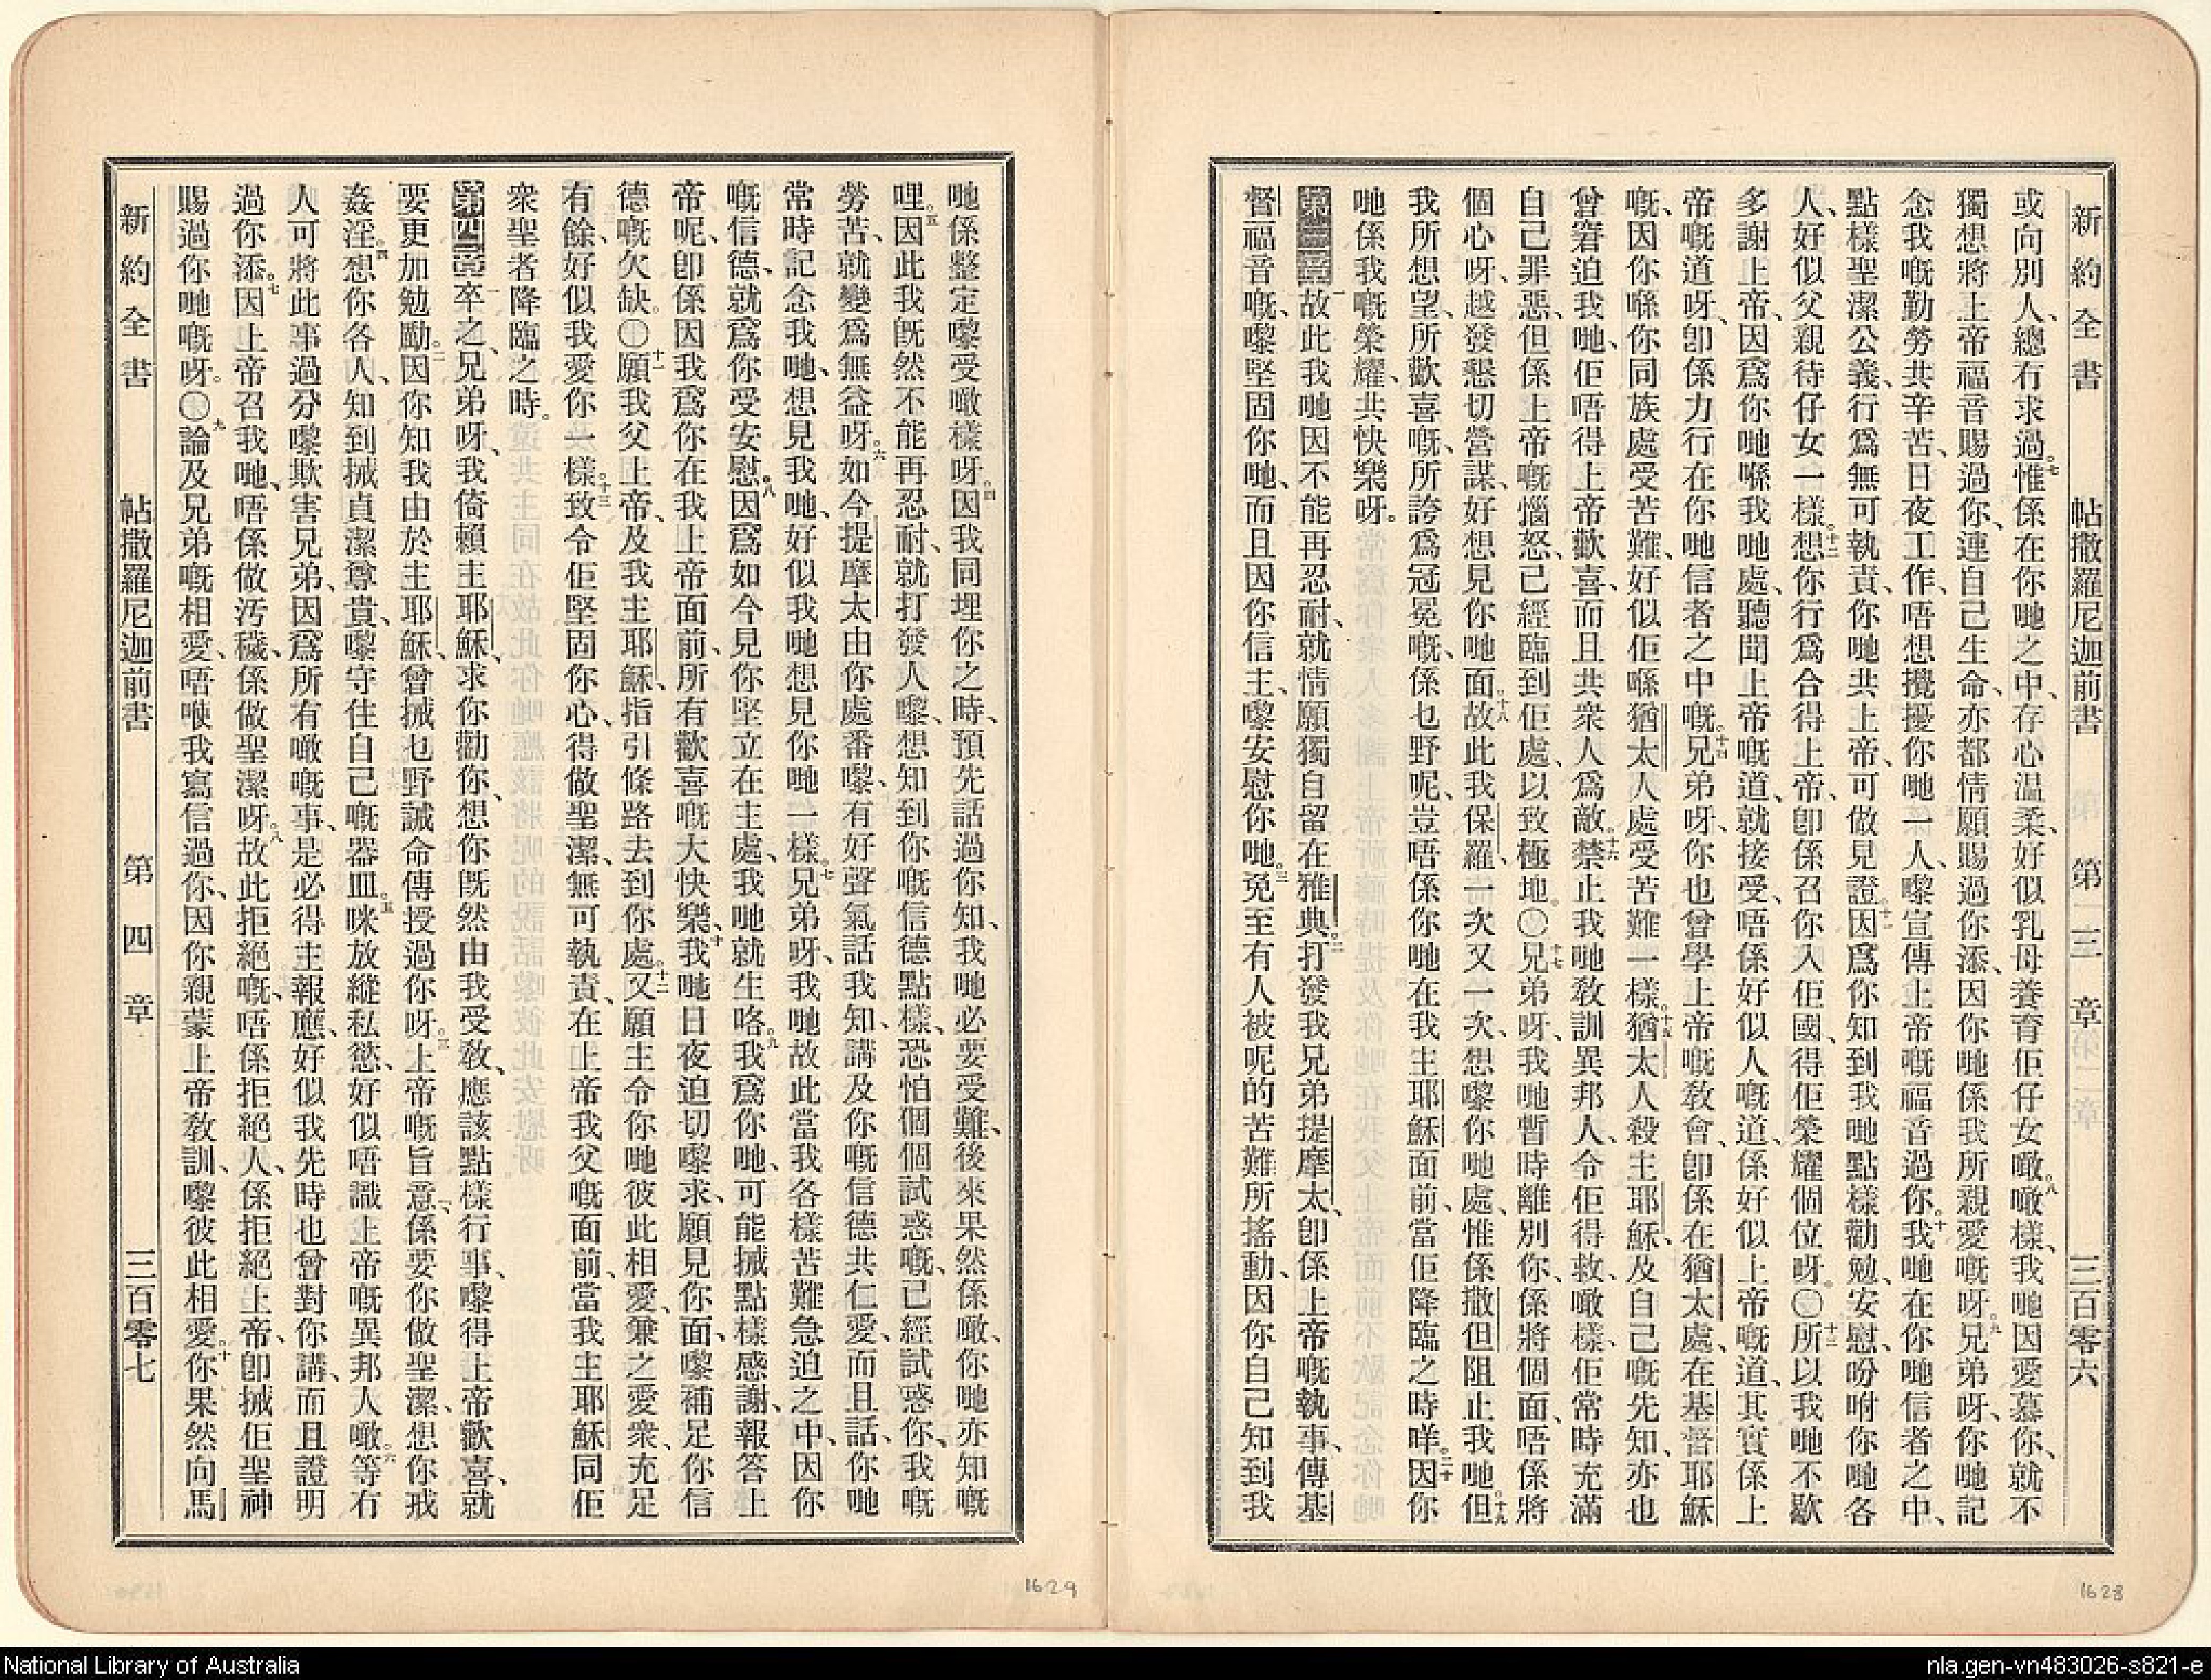 新約全書 帖撒羅尼迦前書 第二三章 三百零六
或向別人、總冇求過。七惟係在你哋之中、存心溫柔、好似乳母養育佢仔女噉。八噉樣、我哋因愛慕你、就不
獨想將上帝福音賜過你、連自己生命、亦都情願賜過你添、因你哋係我所親愛嘅呀。九兄弟呀、你哋記
念我嘅勤勞共辛苦、日夜工作、唔想攪擾你哋一人、嚟宣傳上帝嘅福音過你。十我哋在你哋信者之中、
點樣聖潔公義、行爲無可執責、你哋共上帝、可做見證。十一因爲你知到我哋點樣勸勉、安慰、吩咐你哋各
人、好似父親待仔女一樣。十二想你行爲合得上帝、卽係召你入佢國、得佢榮耀個位呀。〇十三所以我哋不歇
多謝上帝、因爲你哋喺我哋處、聽聞上帝嘅道、就接受、唔係好似人嘅道、係好似上帝嘅道、其實係上
帝嘅道呀、卽係力行在你哋信者之中嘅。十四兄弟呀、你也曾學上帝嘅教會、卽係在猶太處、在基督耶穌
嘅、因你喺你同族處受苦難、好似佢喺猶太人處受苦難一樣。十五猶太人殺主耶穌、及自己嘅先知、亦也
曾窘迫我哋、佢唔得上帝歡喜、而且共衆人爲敵。十六禁止我哋教訓異邦人、令佢得救、噉樣、佢常時充滿
自己罪惡、但係上帝嘅惱怒、已經臨到佢處、以致極地。〇十七兄弟呀、我哋暫時離別你、係將個面、唔係將
個心呀、越發懇切營謀、好想見你哋面。十八故此我保羅一次又一次、想嚟你哋處、惟係撒但阻止我哋但。十九
我所想望、所歡喜嘅、所誇爲冠冕嘅、係乜野呢、豈唔係你哋在我主耶穌面前、當佢降臨之時咩。二十因你
哋係我嘅榮耀、共快樂呀。
第三章一故此我哋因不能再忍耐、就情願獨自留在雅典。二打發我兄弟提摩太、卽係上帝嘅執事、傳基
督福音嘅、嚟堅固你哋、而且因你信主、嚟安慰你哋。三免至有人被呢的苦難所搖動、因你自己知到我
新約全書 帖撒羅尼迦前書 第四章 三百零七
哋係整定嚟受噉樣呀。四因我同埋你之時、預先話過你知、我哋必要受難、後來果然係噉、你哋亦知嘅
哩。五因此我旣然不能再忍耐、就打發人嚟、想知到你嘅信德點樣、恐怕個個試惑嘅、已經試惑你、我嘅
勞苦、就變爲無益呀。六如今提摩太由你處番嚟、有好聲氣話我知、講及你嘅信德共仁愛、而且話、你哋
常時記念我哋、想見我哋、好似我哋想見你哋一樣。七兄弟呀、我哋故此當我各樣苦難急迫之中、因你
嘅信德、就爲你受安慰。八因爲如今見你堅立在主處、我哋就生咯。九我爲你哋、可能搣點樣感謝、報答上
帝呢、卽係因我爲你在我上帝面前、所有歡喜嘅大快樂。十我哋日夜迫切嚟求、願見你面、嚟補足你信
德嘅欠缺。〇十一願我父上帝、及我主耶穌、指引條路去到你處。十二又願主令你哋彼此相愛、兼之愛衆、充足
有餘、好似我愛你一樣。十三致令佢堅固你心、得做聖潔、無可執責、在上帝我父嘅面前、當我主耶穌同佢
衆聖者降臨之時。
第四章一卒之、兄弟呀、我倚賴主耶穌、求你勸你、想你旣然由我受教、應該點樣行事、嚟得上帝歡喜、就
要更加勉勵。二因你知我由於主耶穌、曾搣乜野誡命傳授過你呀。三上帝嘅旨意、係要你做聖潔、想你戒
姦淫。四想你各人、知到搣貞潔尊貴、嚟守住自己嘅器皿。五咪放縱私慾、好似唔識上帝嘅異邦人噉。六等冇
人可將此事過分嚟欺害兄弟、因爲所有噉嘅事、是必得主報應、好似我先時也曾對你講、而且證明
過你添。七因上帝召我哋、唔係做汚穢、係做聖潔呀。八故此拒絕嘅、唔係拒絕人、係拒絕上帝、卽搣佢聖神
賜過你哋嘅呀。〇九論及兄弟嘅相愛、唔喉我寫信過你、因你親蒙上帝教訓、嚟彼此相愛。十你果然向馬
1629
1628
National Library of Australia
nla.gen-vn483026-s821-e